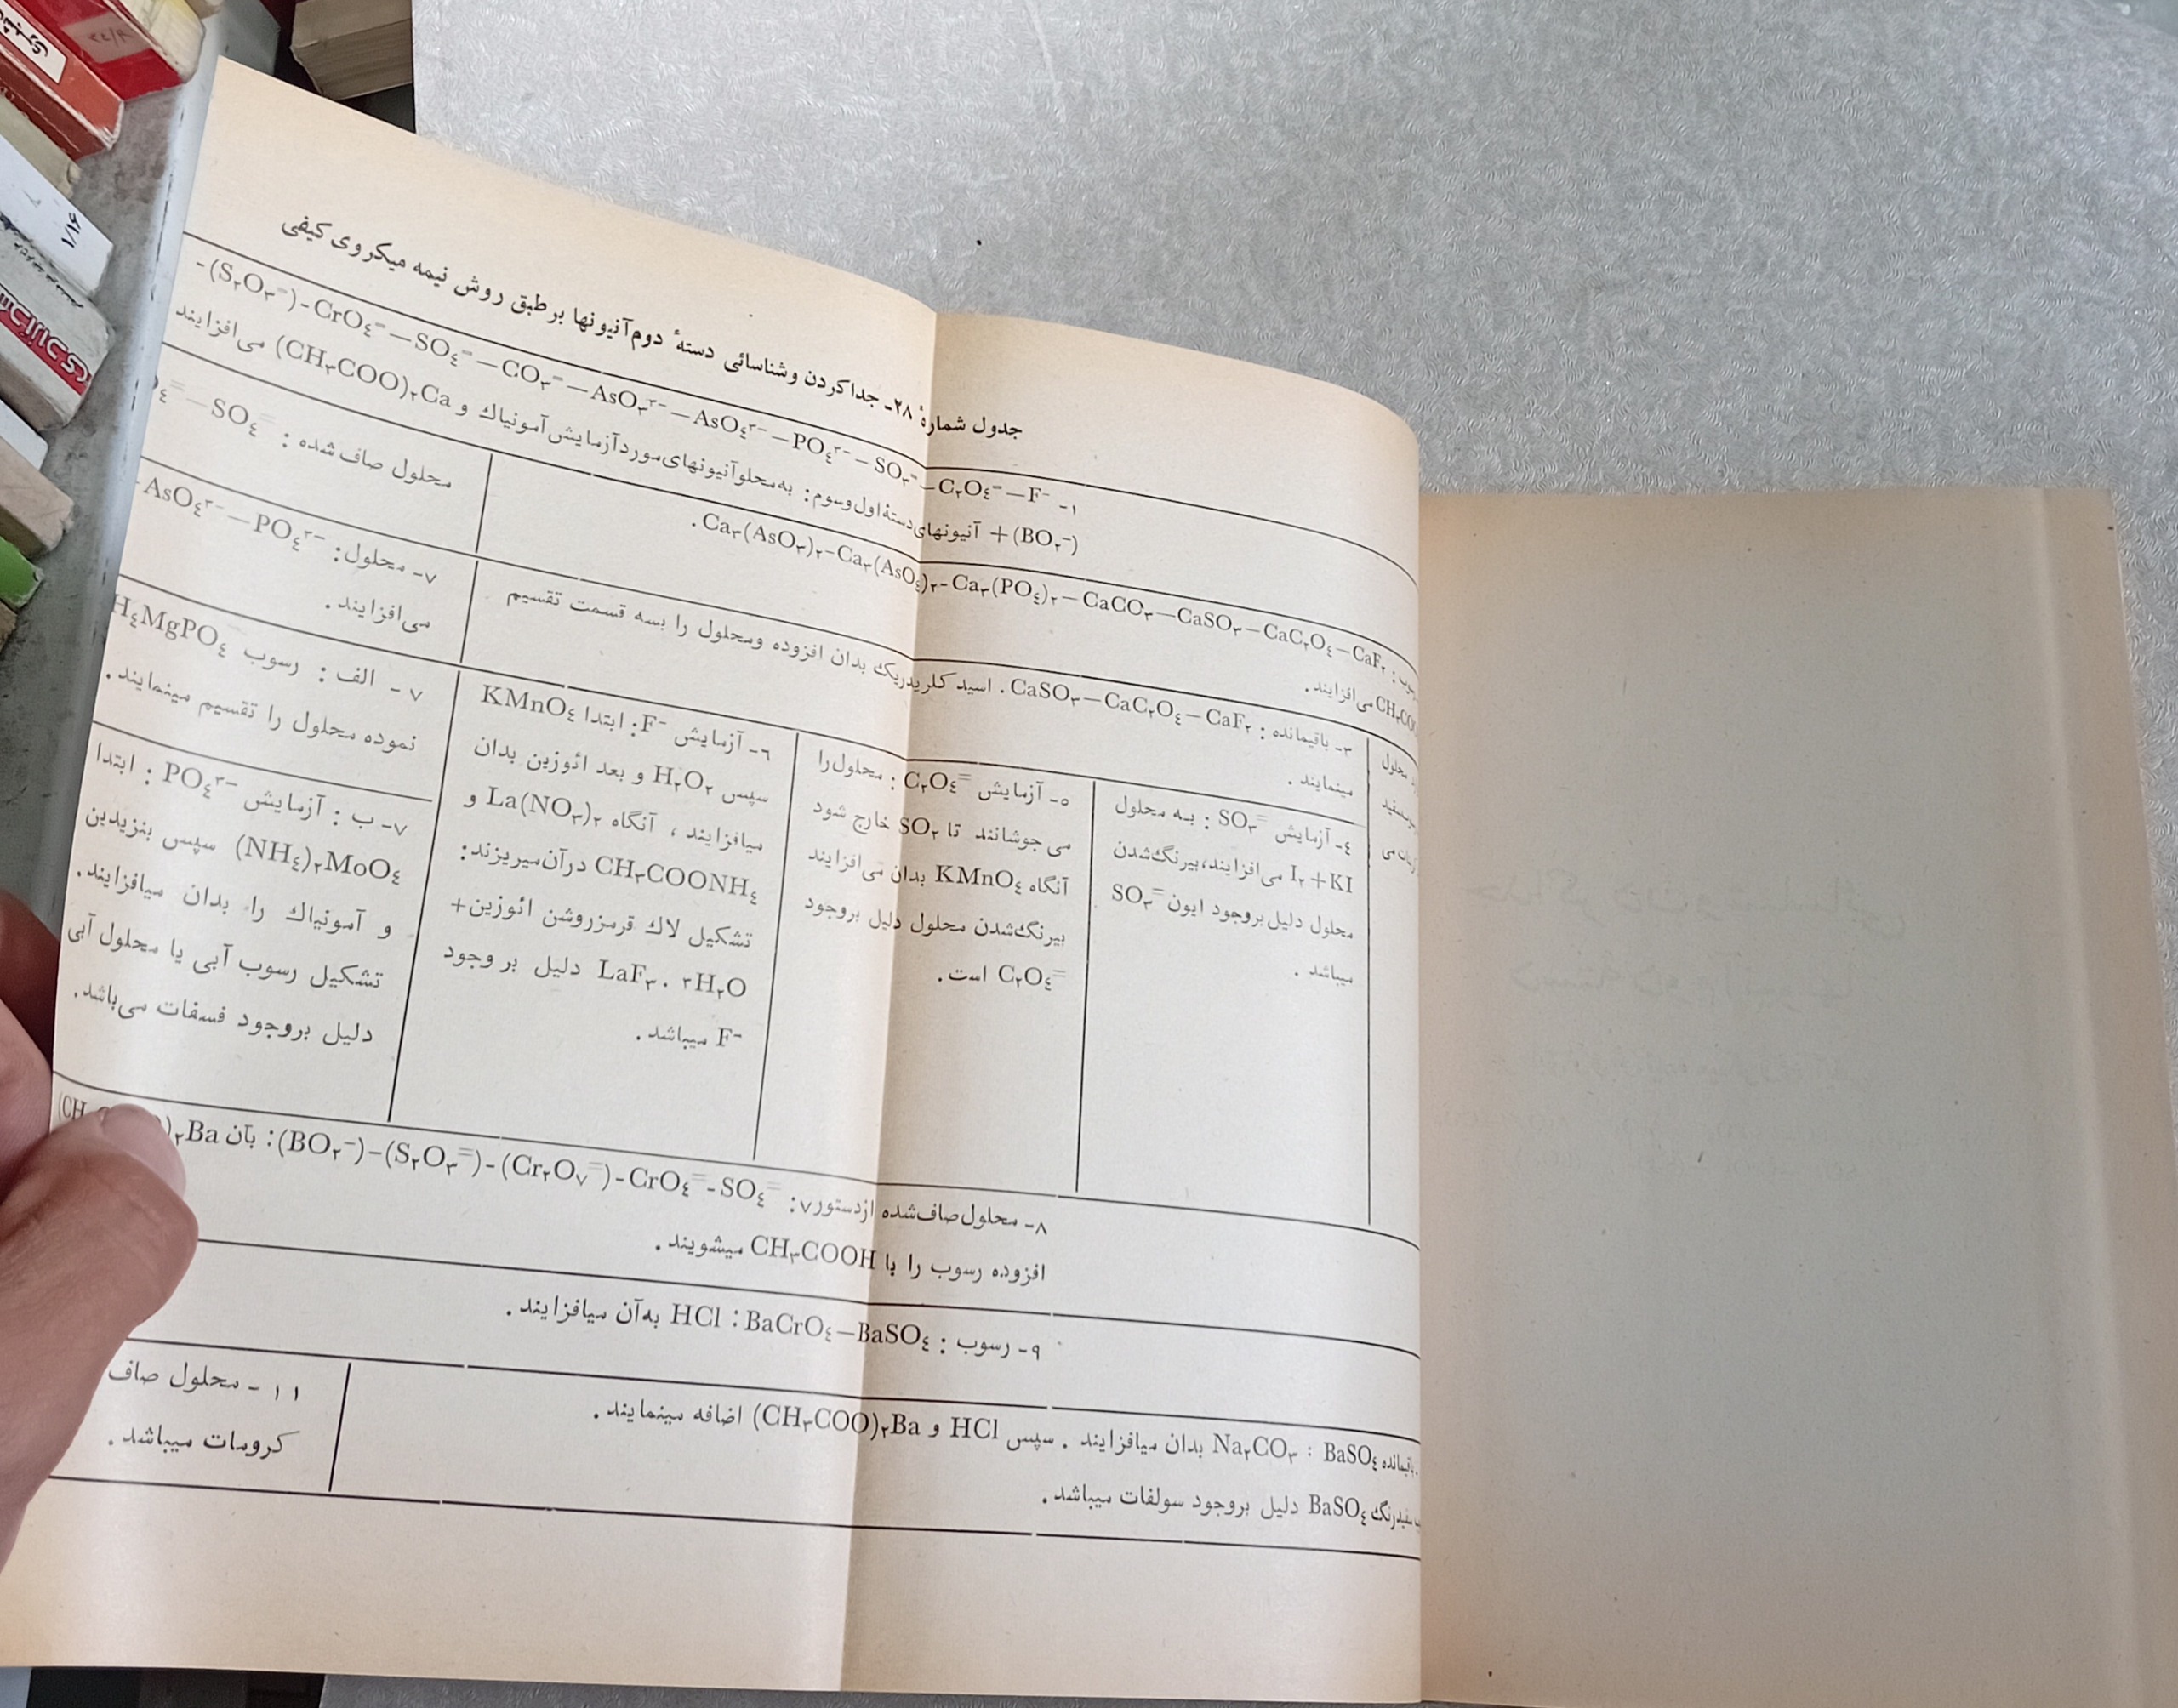 جدول شمارهٔ ۲۸- جدا کردن و شناسائی دستهٔ دوم آنیونها بر طبق روش نیمه میکروی کیفی
۱- F⁻ — C₂O₄⁼ — SO₃⁼ — PO₄³⁻ — AsO₄³⁻ — AsO₃³⁻ — CO₃⁼ — SO₄⁼ — CrO₄⁼ - (S₂O₃⁼) -
(BO₂⁻) + آنیونهای دستهٔ اول و سوم: به محلو آنیونهای مورد آزمایش آمونیاك و (CH₃COO)₂Ca می‌افزایند
رسوب : CaF₂ — CaC₂O₄ — CaSO₃ — CaCO₃ — Ca₃(PO₄)₂ - Ca₃(AsO₄)₂ - Ca₃(AsO₃)₂ .
می‌افزایند .
محلول صاف شده : SO₄⁼ —
۳- باقیمانده : CaF₂ — CaC₂O₄ — CaSO₃ . اسید کلریدریك بدان افزوده و محلول را بسه قسمت تقسیم
مینمایند .
۷- محلول: PO₄³⁻ — AsO₄³⁻
می‌افزایند .
محلول
٤- آزمایش SO₃⁼ : به محلول
I₂ + KI می‌افزایند، بیرنگ شدن
محلول دلیل بروجود ایون SO₃⁼
میباشد .
٥- آزمایش C₂O₄⁼ : محلول را
می جوشانند تا SO₂ خارج شود
آنگاه KMnO₄ بدان می‌افزایند
بیرنگ شدن محلول دلیل بروجود
C₂O₄⁼ است .
٦- آزمایش F⁻: ابتدا KMnO₄
سپس H₂O₂ و بعد ائوزین بدان
میافزایند ، آنگاه La(NO₃)₂ و
CH₃COONH₄ در آن میریزند:
تشکیل لاك قرمز روشن ائوزین+
LaF₃ . ۳H₂O دلیل بر وجود
F⁻ میباشد .
۷- الف : رسوب H₄MgPO₄
نموده محلول را تقسیم مینمایند .
۷- ب : آزمایش PO₄³⁻ : ابتدا
(NH₄)₂MoO₄ سپس بنزیدین
و آمونیاك را بدان میافزایند .
تشکیل رسوب آبی یا محلول آبی
دلیل بروجود فسفات می‌باشد .
۸- محلول صاف شده از دستور۷: SO₄⁼ - CrO₄⁼ - (Cr₂O₇⁼) - (S₂O₃⁼) - (BO₂⁻): بآن ₂Ba
افزوده رسوب را با CH₃COOH میشویند .
۹- رسوب : BaCrO₄ — BaSO₄ : HCl به آن میافزایند .
باقیمانده BaSO₄ : Na₂CO₃ بدان میافزایند . سپس HCl و (CH₃COO)₂Ba اضافه مینمایند .
سفید رنگ BaSO₄ دلیل بروجود سولفات میباشد .
۱۱ - محلول صاف
کرومات میباشد .